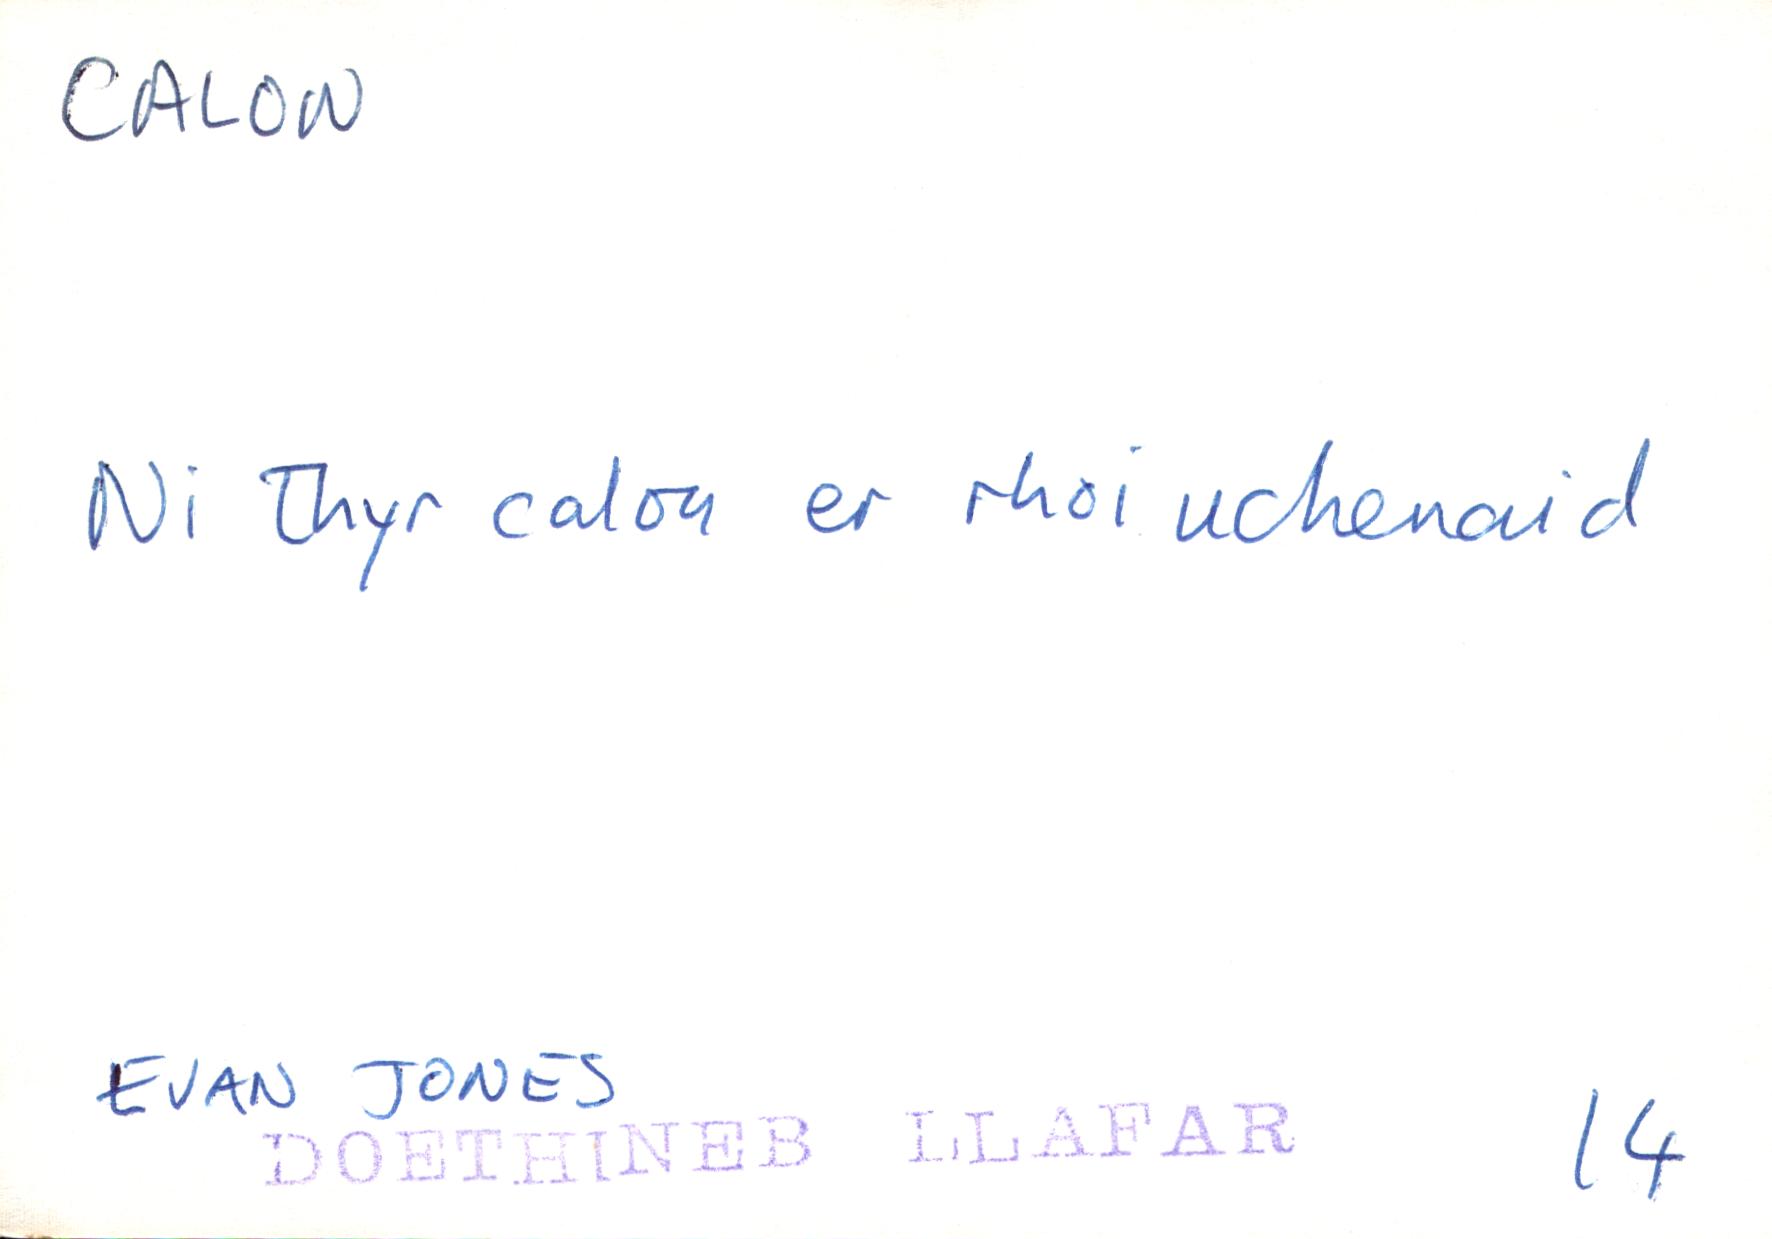 CALON
Ni thyr calon er rhoi uchenaid
EVAN JONES
DOETHINEB LLAFAR
14